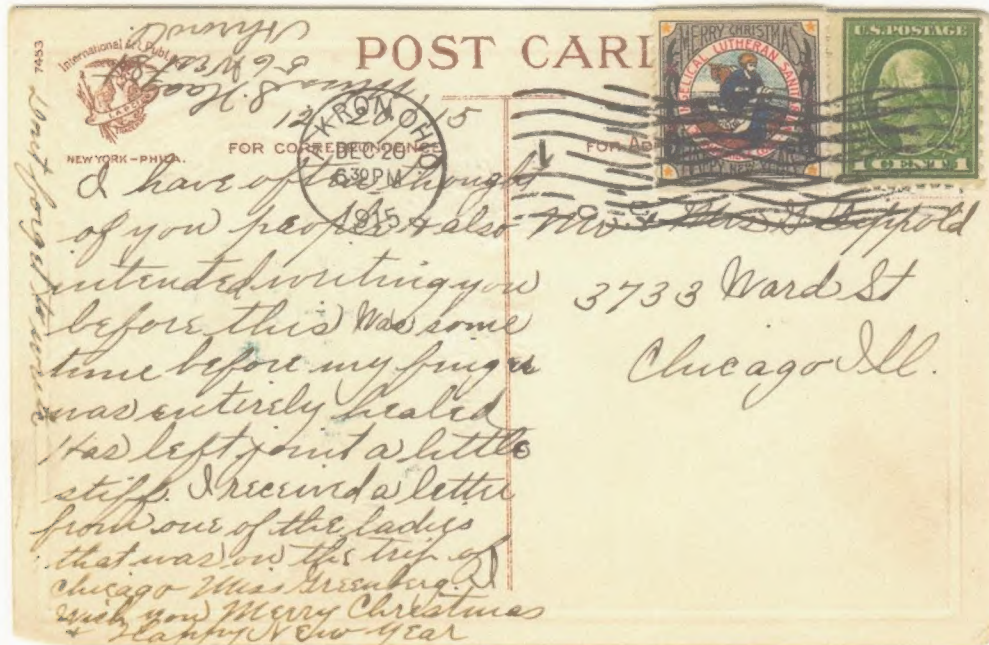 7453
International Art Publ.
NEW YORK – PHILA.
POST CARD
Akron O.
Miss S. Haag
12/20/15
FOR CORRESPONDENCE
AKRON, OHIO
DEC 20
630 PM
1915
MERRY CHRISTMAS
EVANGELICAL LUTHERAN
HAPPY NEW YEAR
U.S. POSTAGE
1 CENT 1
I have often thought
of you people & also
intended writing you
before this Was some
time before my finger
was entirely healed
Has left joint a little
stiff. I received a letter
from one of the ladies
that was on the trip of
Chicago Miss Greenberg. I
wish you Merry Christmas
& Happy New Year
Dont forget to write
Mr & Mrs G Deppold
3733 Ward St
Chicago Ill.